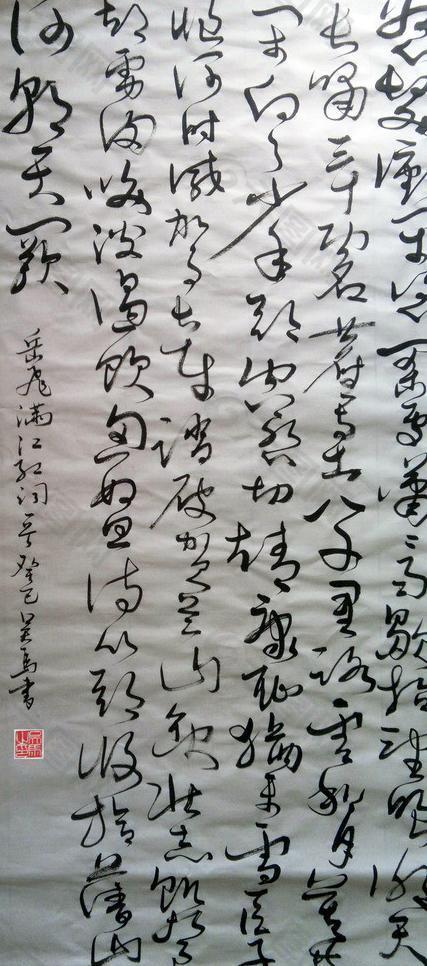 怒发冲冠凭栏处潇潇雨歇抬望眼仰天
长啸三十功名尘与土八千里路云和月莫等
闲白了少年头空悲切靖康耻犹未雪臣子
恨何时灭驾长车踏破贺兰山缺壮志饥餐
胡虏肉笑谈渴饮匈奴血待从头收拾旧山
河朝天阙
岳飞满江红词一首癸巳吴马书